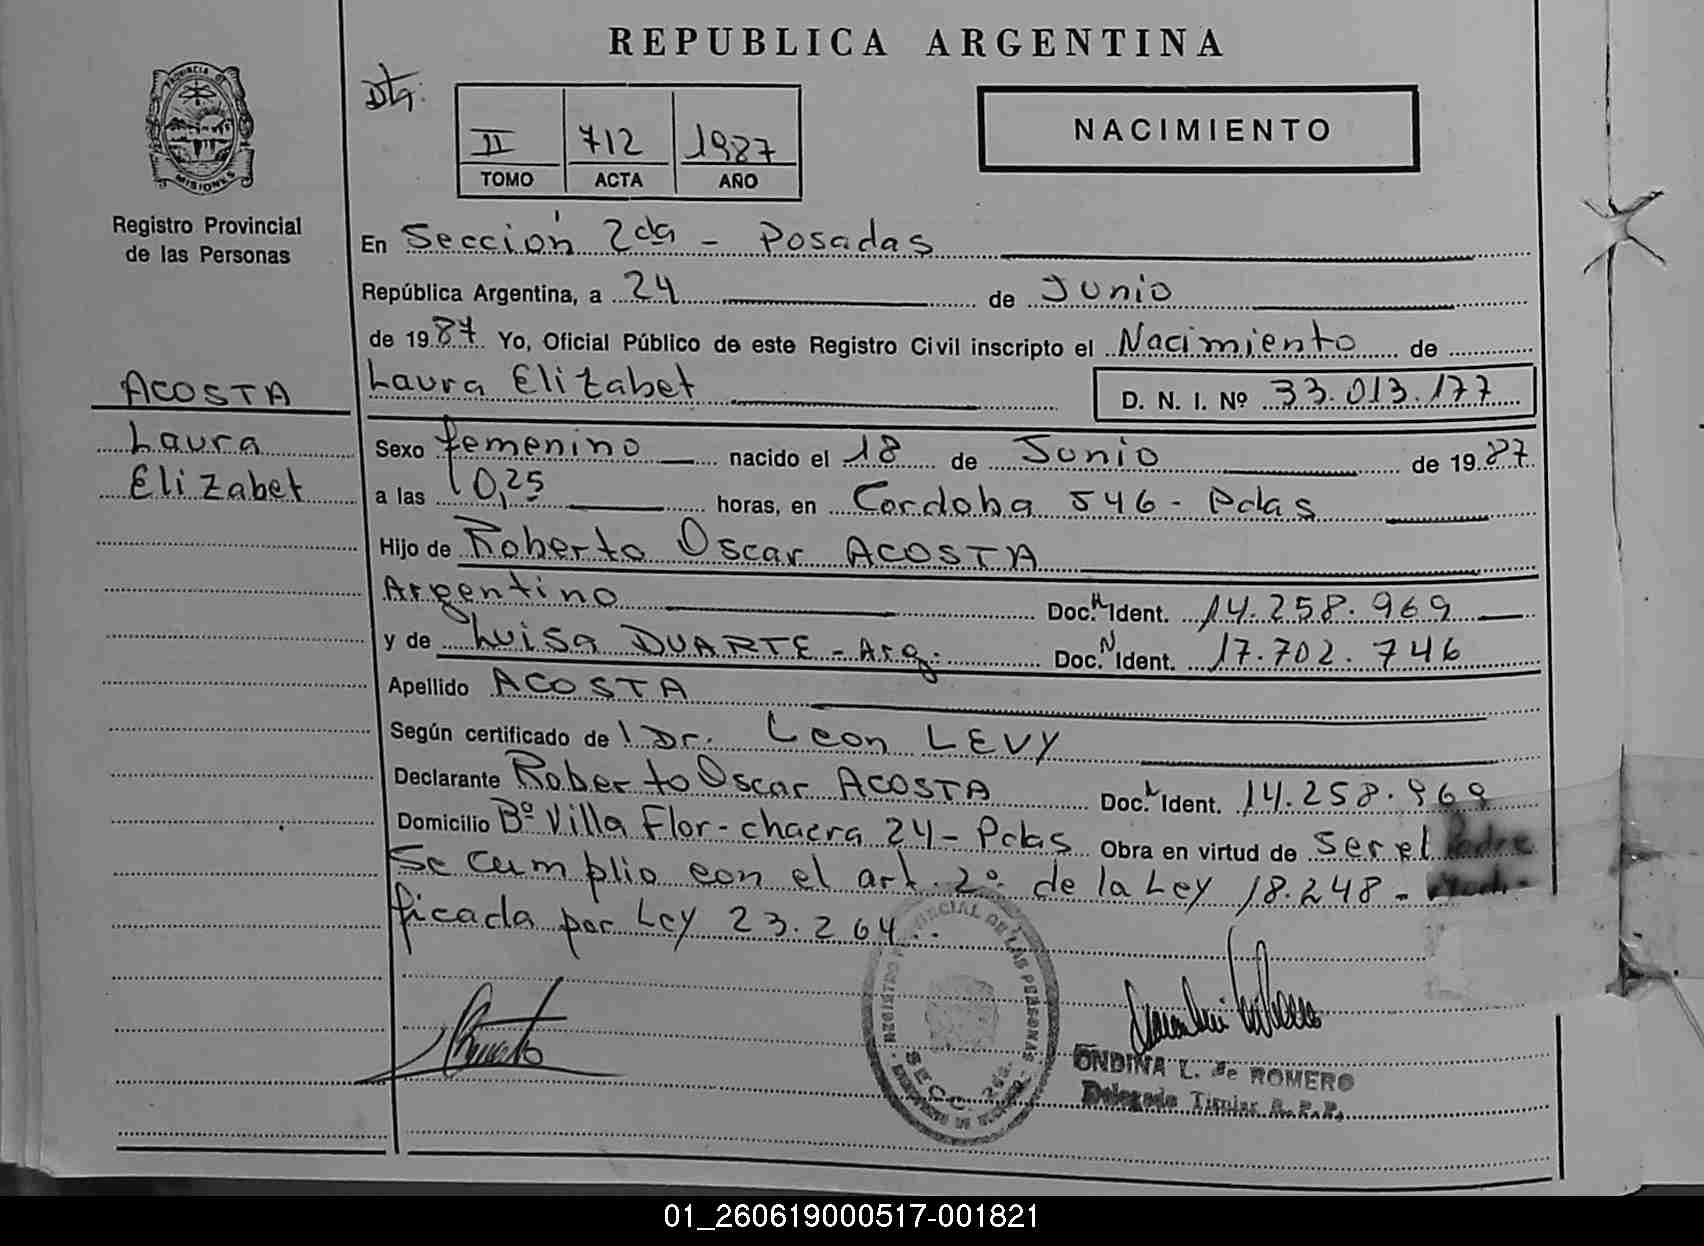 REPUBLICA ARGENTINA
PROVINCIA DE
MISIONES
Registro Provincial
de las Personas
II 712 1987
TOMO ACTA AÑO
NACIMIENTO
En Sección 2da - Posadas
República Argentina, a 24 de Junio
de 1987 Yo, Oficial Público de este Registro Civil inscripto el Nacimiento de
ACOSTA
Laura Elizabet D. N. I. Nº 33.013.177
Laura
Elizabet
Sexo femenino nacido el 18 de Junio de 1987
a las 10,25 horas, en Cordoba 546 - Pdas
Hijo de Roberto Oscar ACOSTA
Argentino Doc. Ident. 14.258.969
y de Luisa DUARTE - Arg. Doc. N Ident. 17.702.746
Apellido ACOSTA
Según certificado de l Dr. Leon LEVY
Declarante Roberto Oscar ACOSTA Doc. Ident. 14.258.969
Domicilio Bº Villa Flor - chacra 24 - Pdas Obra en virtud de ser el Padre
Se cumplio con el art. 2º de la Ley 18.248 -
ficada por Ley 23.264.
REGISTRO PROVINCIAL DE LAS PERSONAS
SECC. 2da.
ONDINA L. de ROMERO
Delegada Titular R.P.P.
01_260619000517-001821